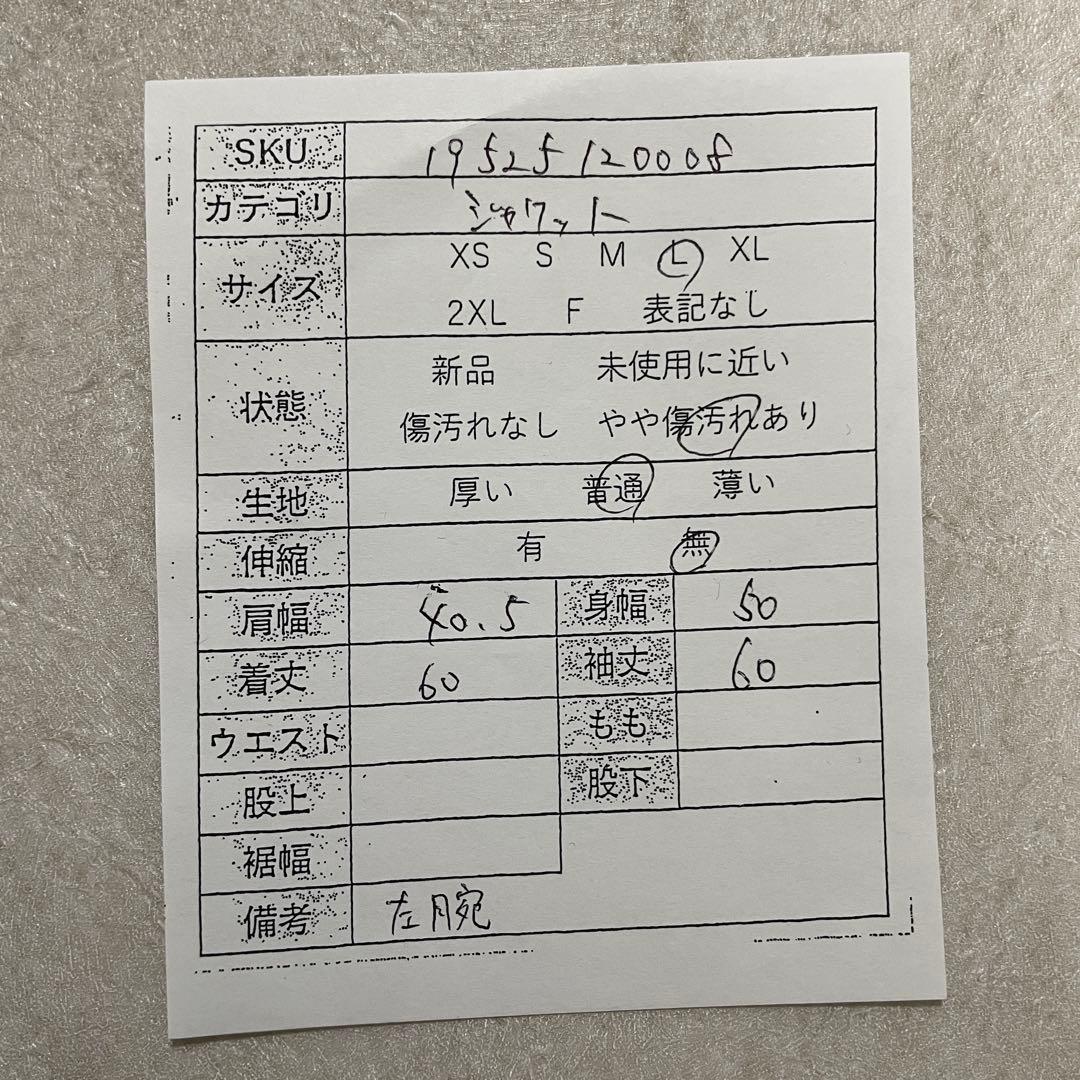 SKU 19525120008
カテゴリ ジャケット
サイズ XS S M L XL
2XL F 表記なし
状態 新品 未使用に近い
傷汚れなし やや傷汚れあり
生地 厚い 普通 薄い
伸縮 有 無
肩幅 40.5 身幅 50
着丈 60 袖丈 60
ウエスト もも
股上 股下
裾幅
備考 左腕